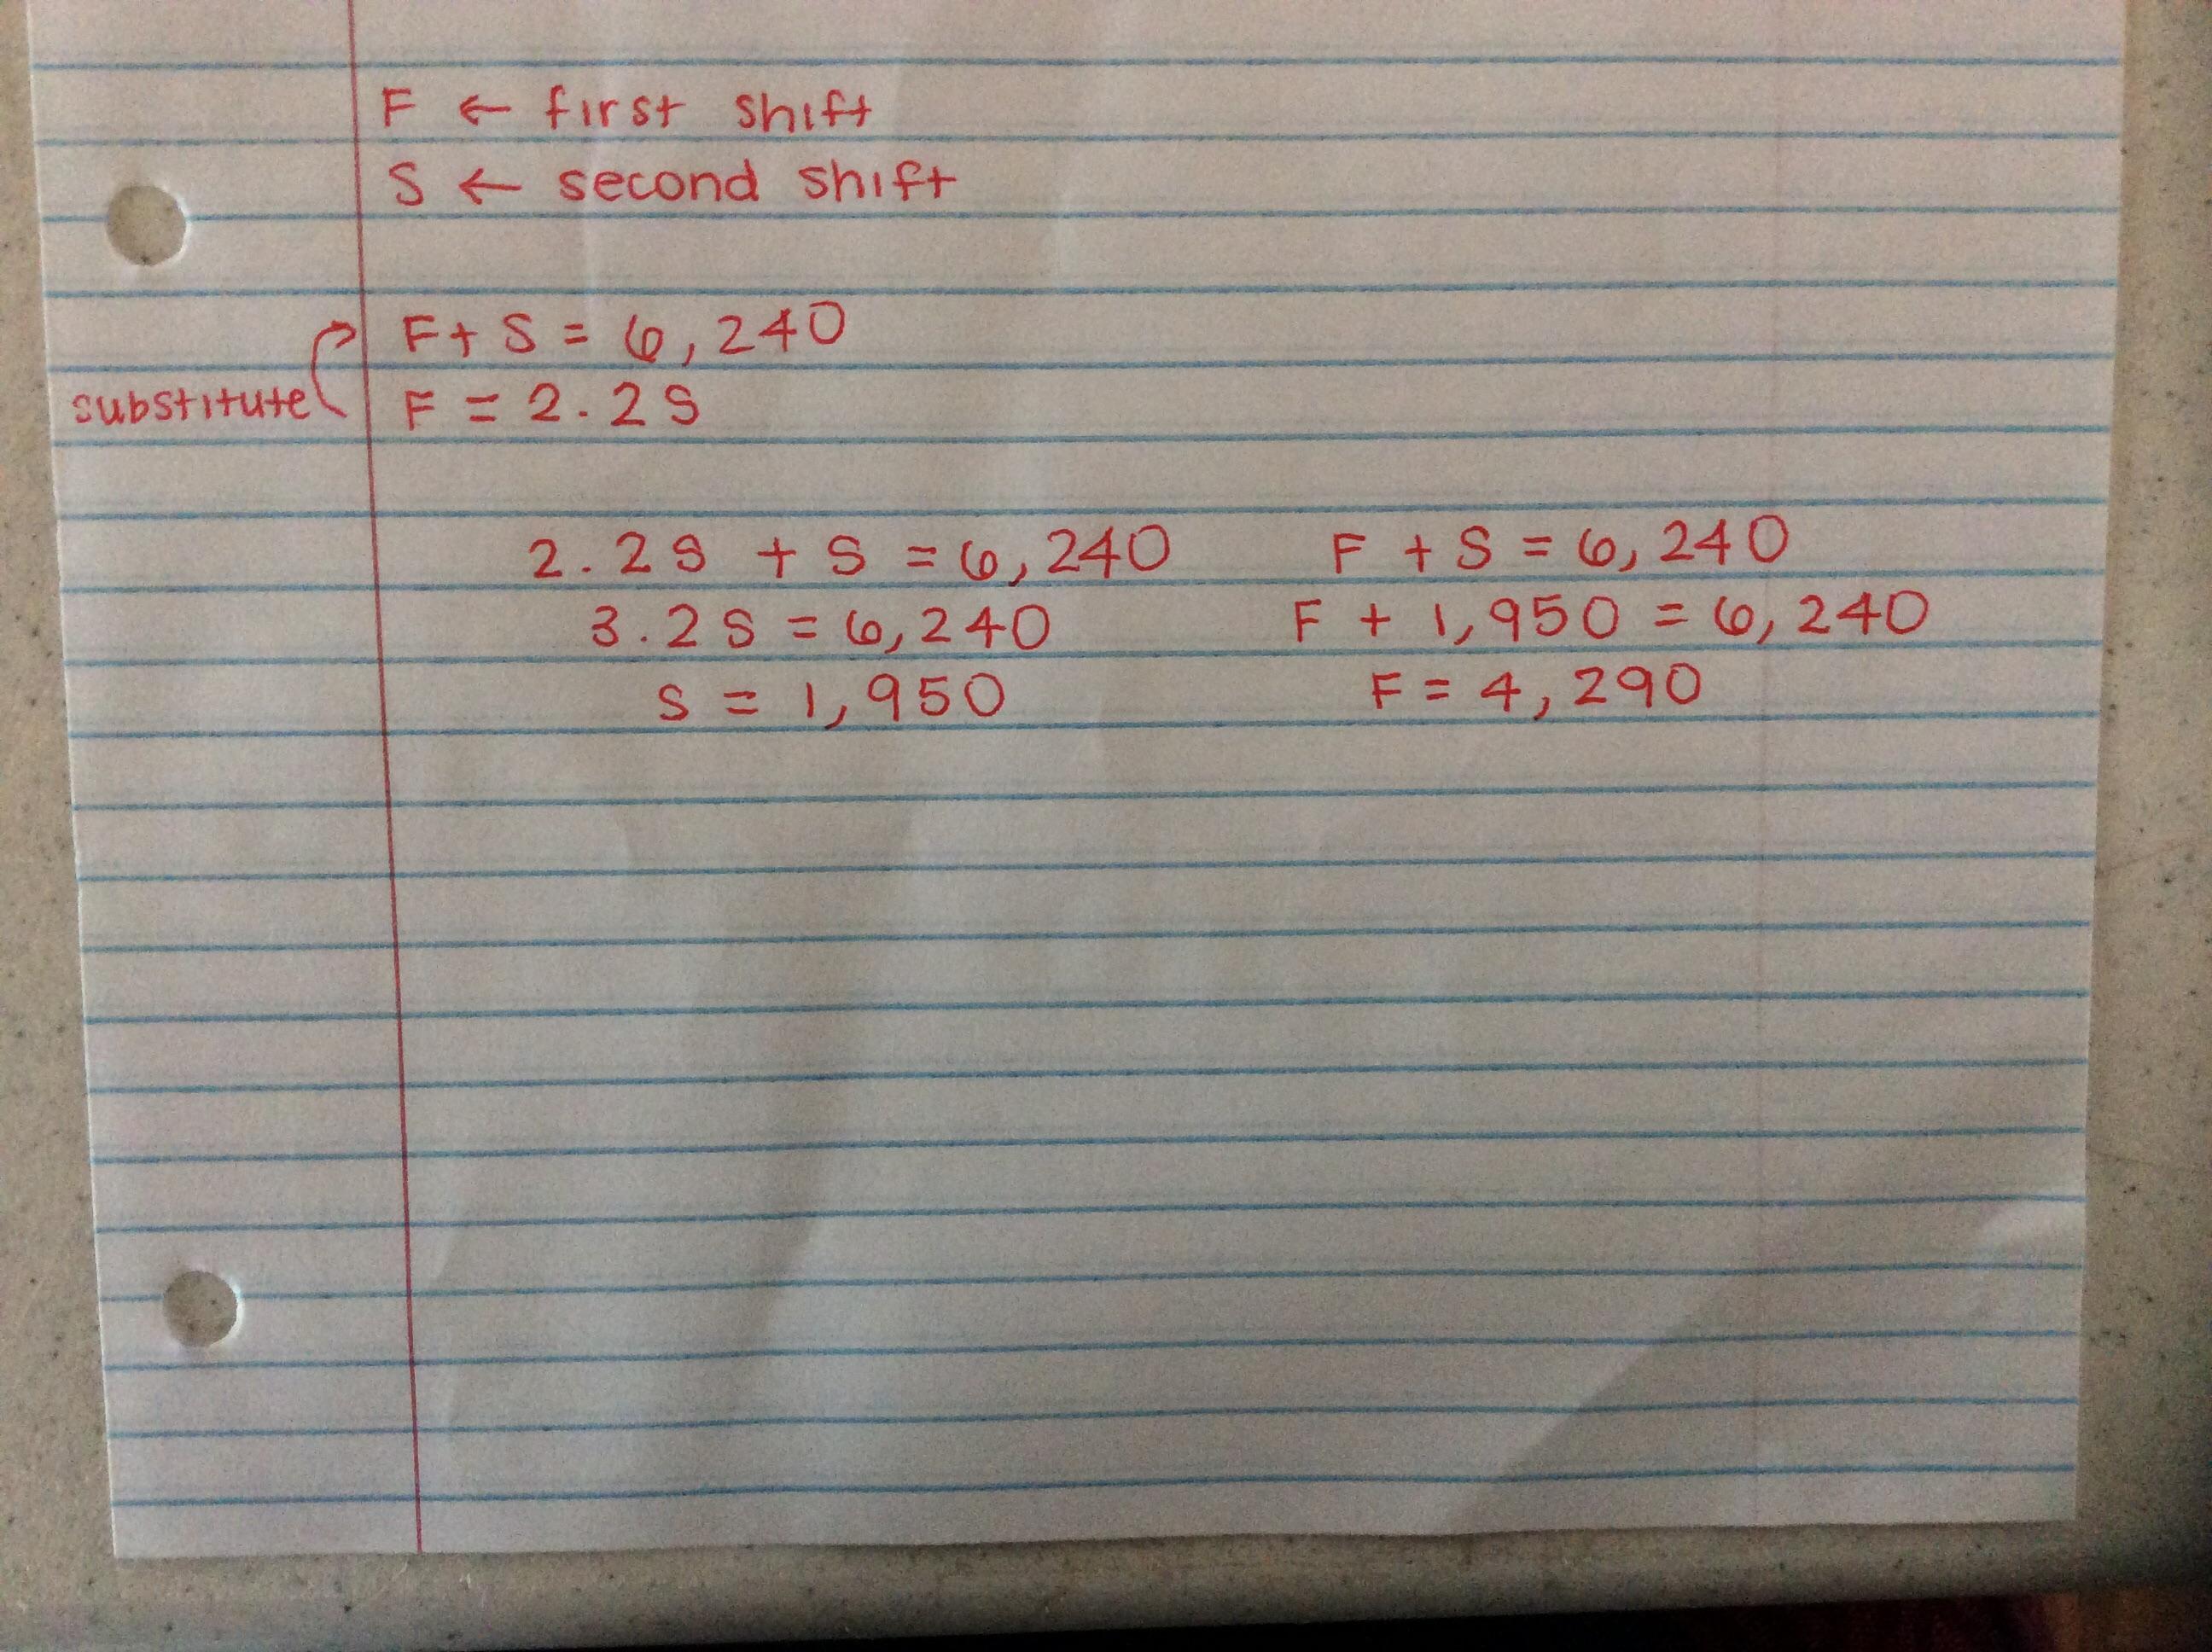 F ← first shift
S ← second shift
F + S = 6,240
substitute F = 2.2S
2.2S + S = 6,240
3.2S = 6,240
S = 1,950
F + S = 6,240
F + 1,950 = 6,240
F = 4,290